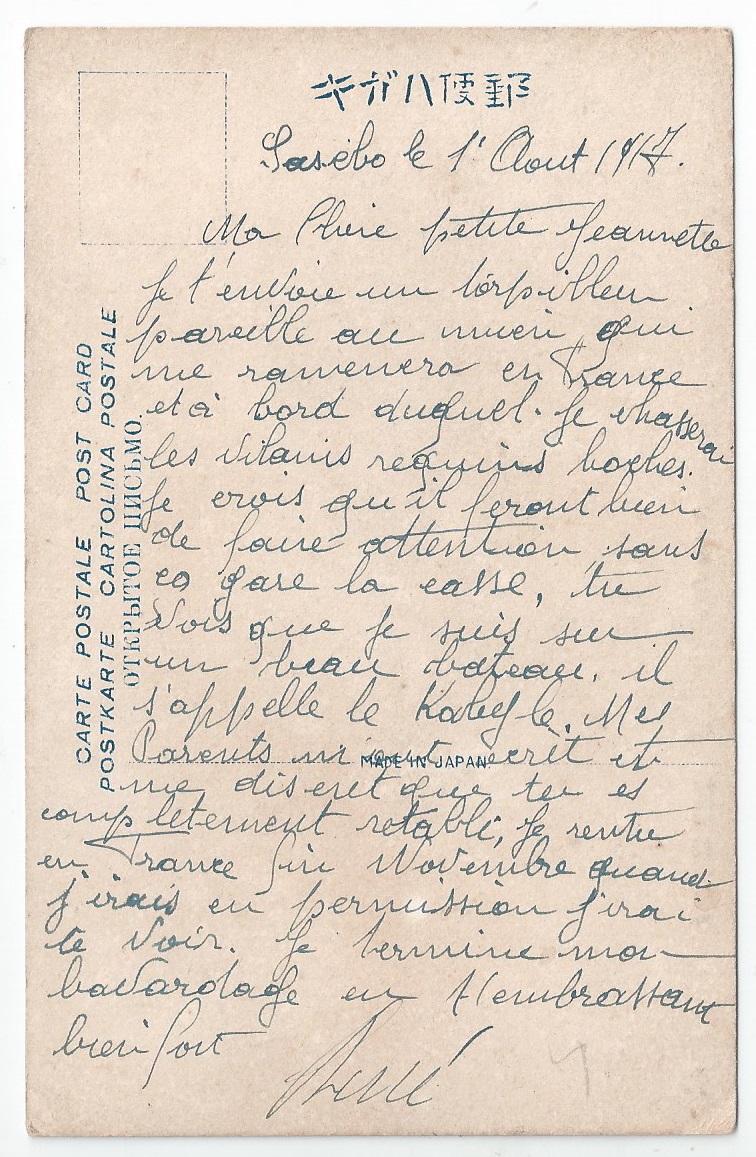 キガハ便郵
Sasébo le 1er Aout 1917.
Ma Chère petite Jeannette
Je t'envoie un torpilleur
pareille au mien, qui
me ramenera en France
et à bord duquel. Je chasserai
les vilains requins boches.
Je crois qu'il feront bien
de faire attention sans
ça gare la casse, tu
vois que je suis sur
un beau bateau. il
s'appelle le Kabyle. Mes
Parents m'ont écrit et
me diset que tu es
completement rétabli, Je rentre
en France fin Novembre quand
j'irais en permission j'irai
te voir. Je termine mon
bavardage en t'embrassant
bien fort
René
CARTE POSTALE POST CARD
POSTKARTE CARTOLINA POSTALE
ОТКРЫТОЕ ПИСЬМО.
MADE IN JAPAN